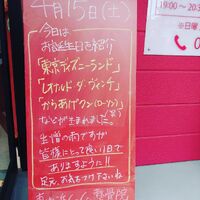 4月15日(土)
今日は
お誕生日を紹介
「東京ディズニーランド」
「レオナルド ダ・ヴィンチ」
「からあげクン(ローソン)」
などが生まれました。
生憎の雨ですが
皆様にとって良い1日で
ありますように!!
足元、お気をつけ下さいね
整骨院
19:00 〜 20:3
※日曜